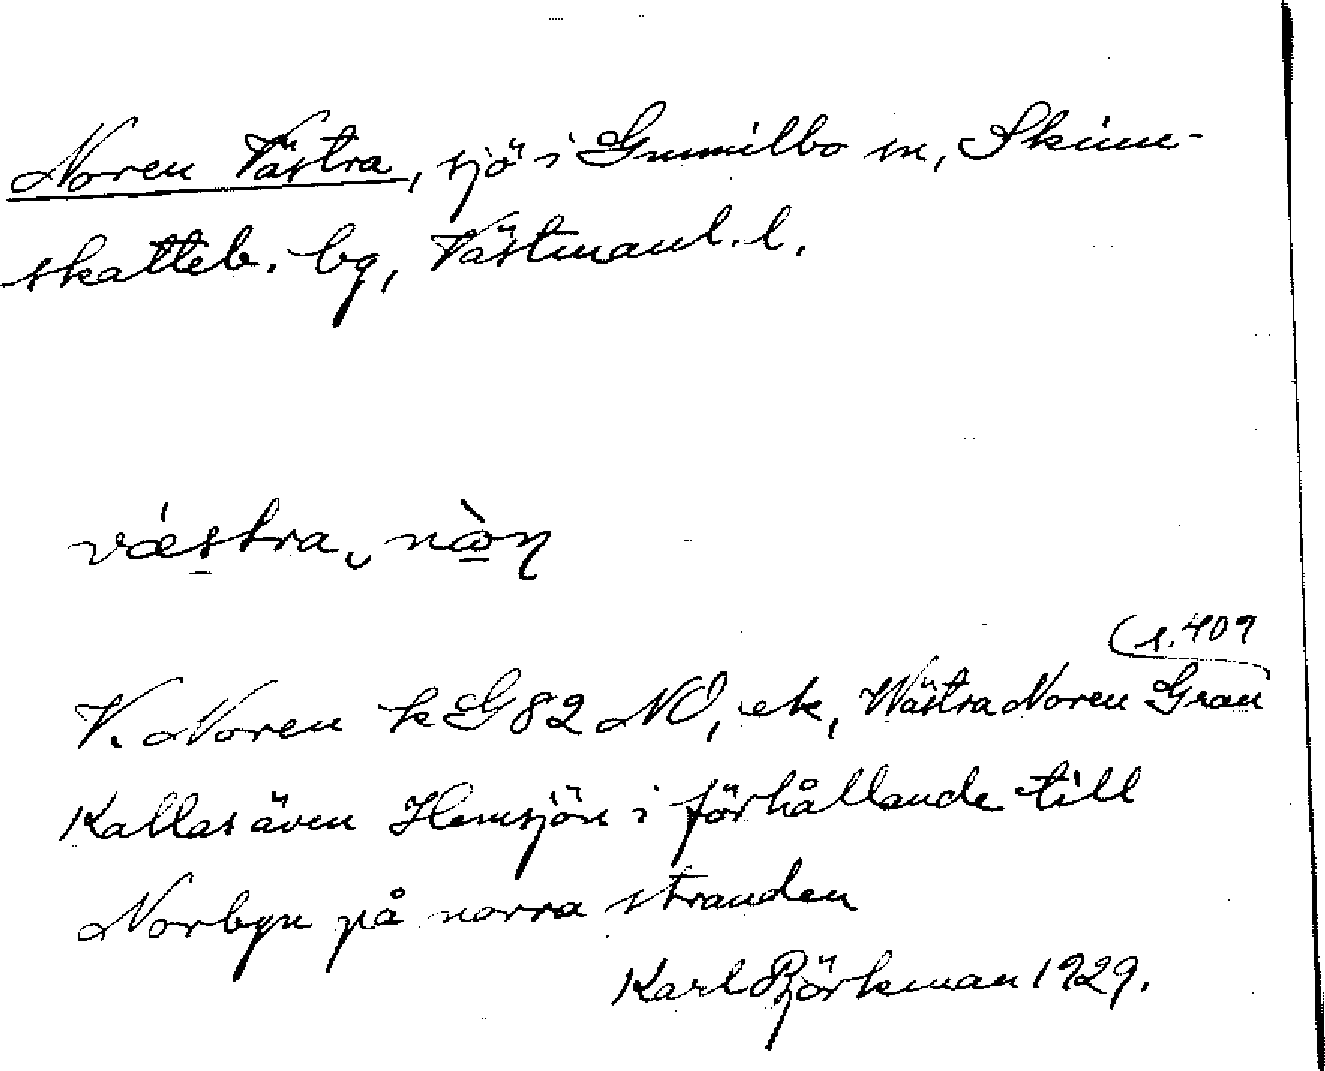 Noren Västra, sjö i Gunnilbo sn, Skinn-
skatteb. bg, Västmanl. l.
västra
s. 409
V. Noren kG 82 NO, ek, Wästra Noren Gran
Kallas även Hemsjön i förhållande till
Norbyn på norra stranden
Karl Björkman 1929.